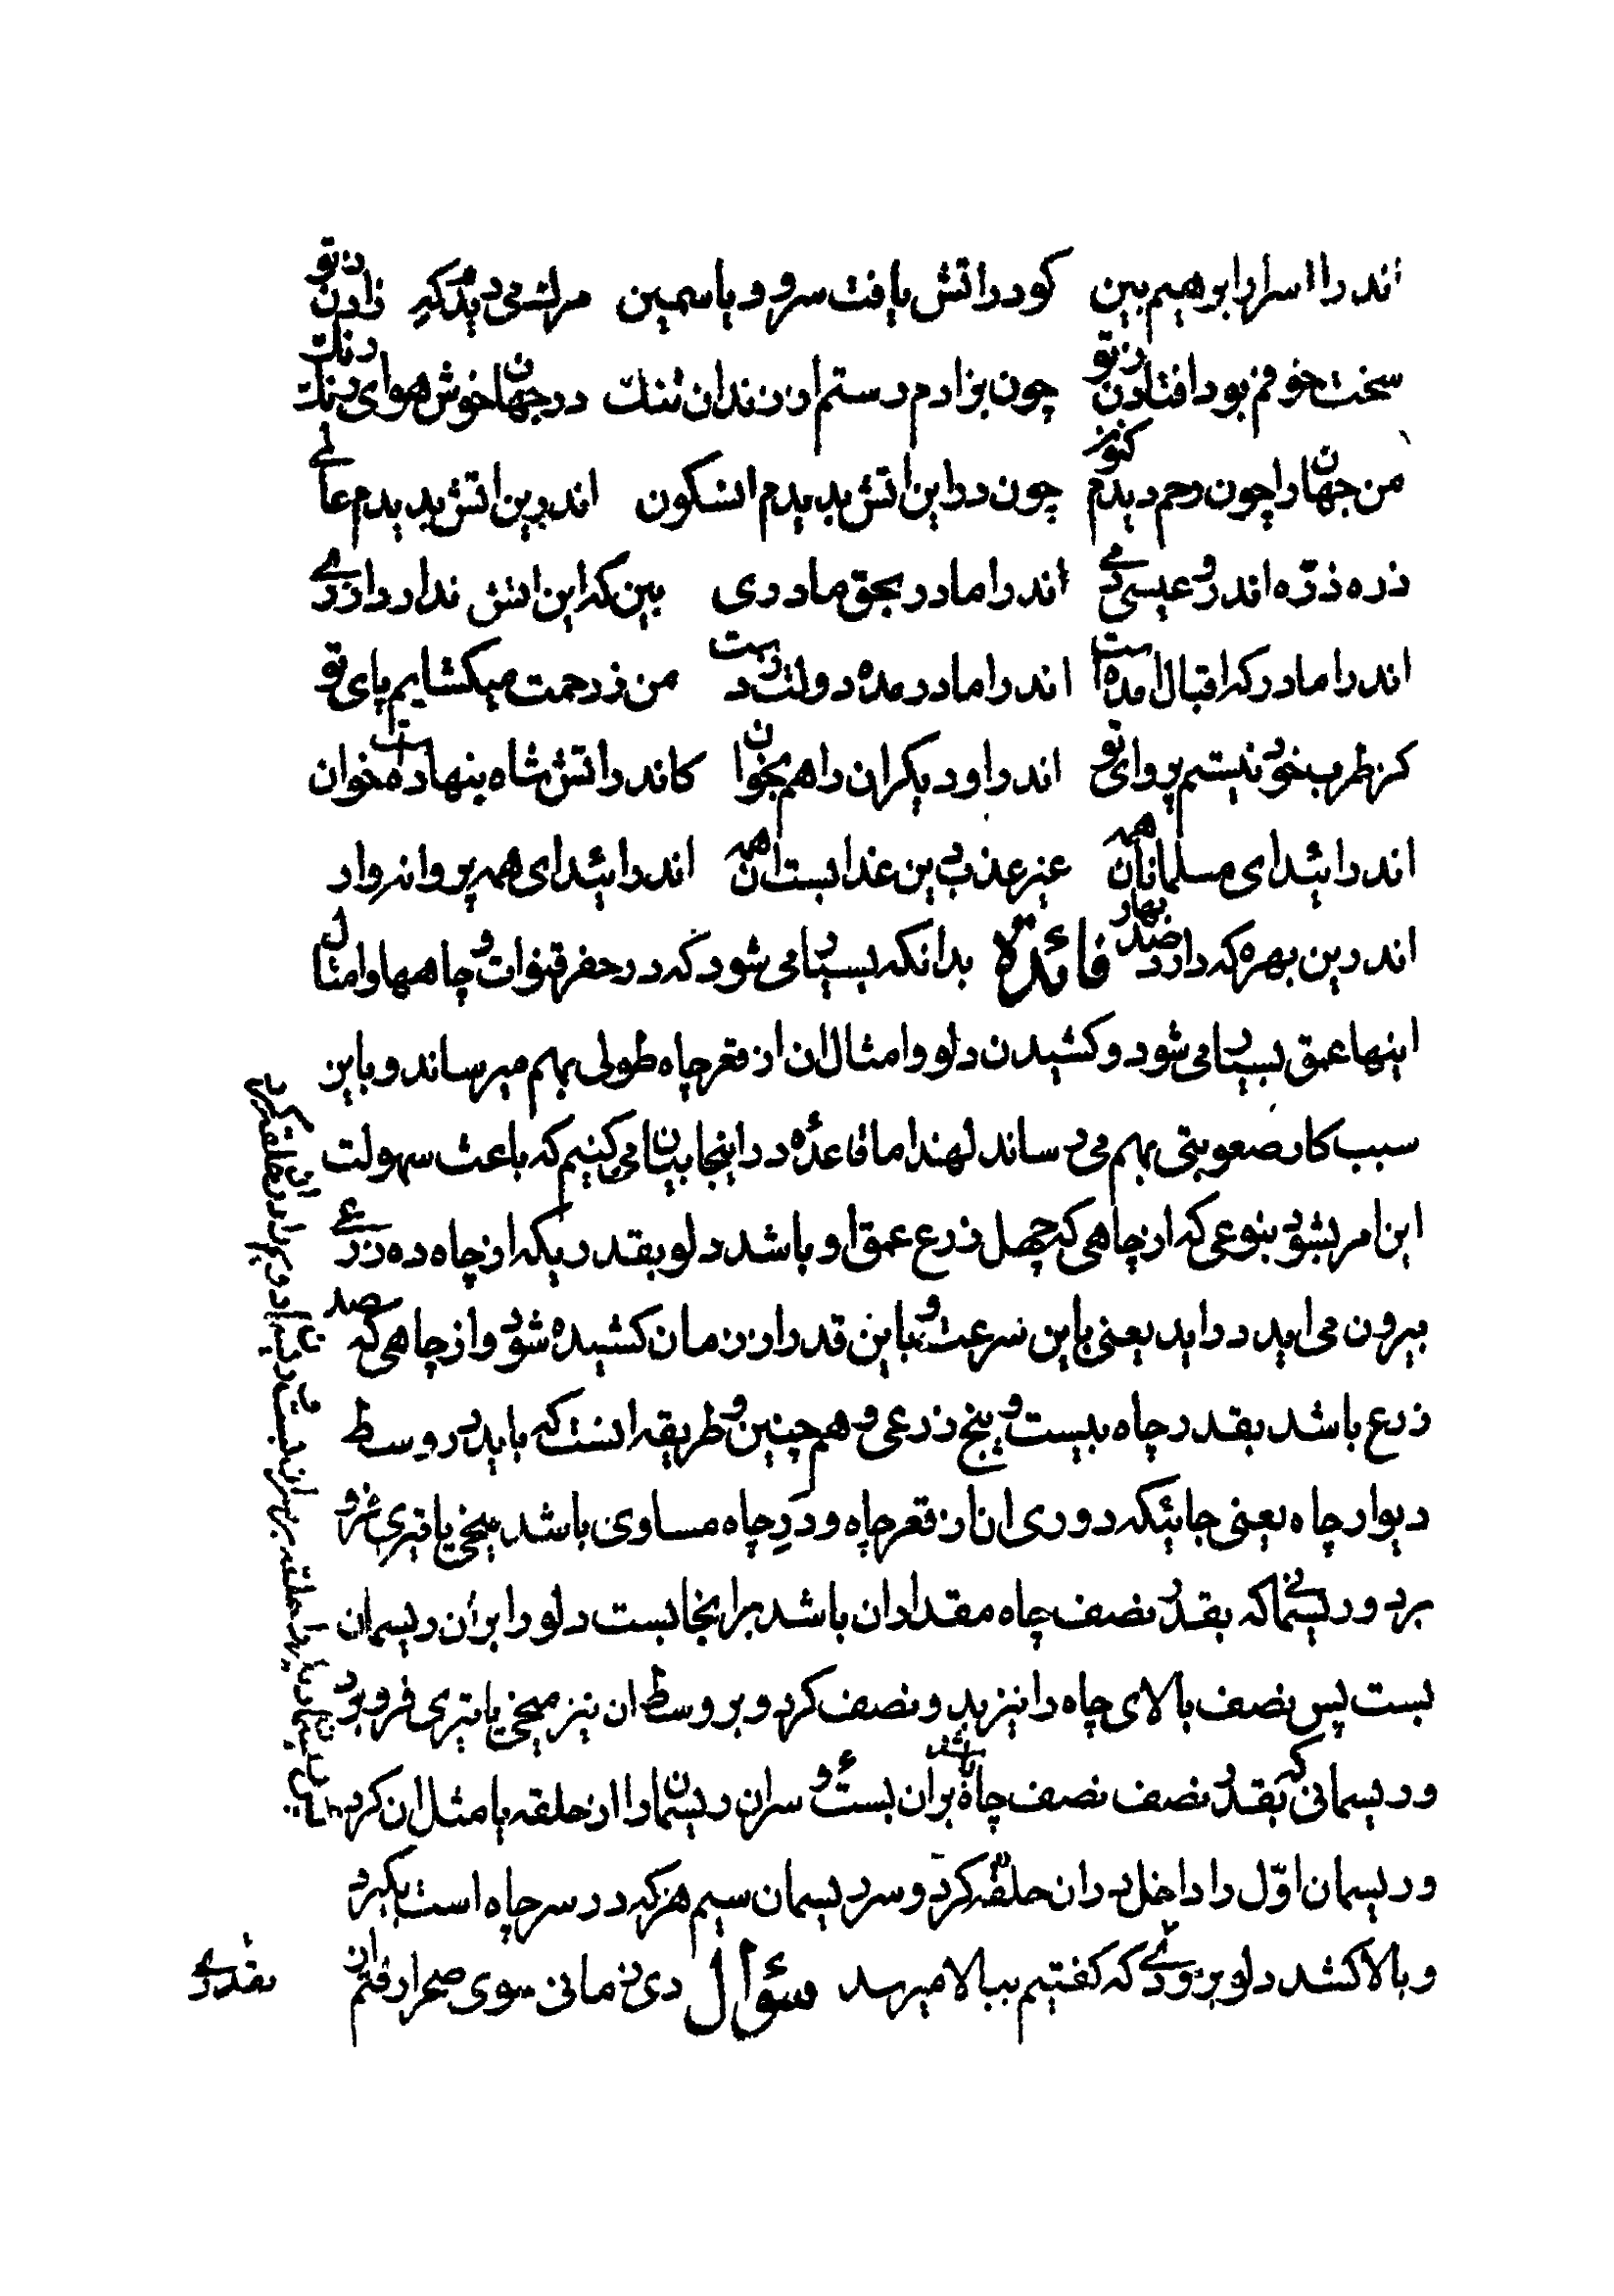 اندر ا اسرار ابرهیم بین   کو در اتش یافت سرو و یاسمین   مرک میدیدم که زادن ز تو
سخت خوفم بود افتادن ز تو   چون بزادم رستم از زندان تنک   در جهان خوش هوای رنک رنک
من جهان را چون رحم دیدم کنون   چون در این اتش بدیدم این سکون   اندرین اتش بدیدم عالمی
ذره ذرّه اندر و عیسی دمی   اندر ا مادر بحق مادری   بین که این اتش ندارد ازری
اندر ا مادر که اقبال امده است   اندر ا مادر مده دولت ز دست   من ز رحمت میکشایم پای تو
کز طرب خود نیستم پروای تو   اندر ا و دیکران را هم بخوان   کاندر اتش شاه بنهاده است خوان
اندر ائید ای مسلمانان همه   غیر عذب این عذابست ان همه   اندر ائید ای همه پروانه وار
اندرین بهره که دارد صد بهار   فائدة   بدانکه بسیار می شود که در حفر قنوات و چاهها و امثال
اینها عمق بسیار می شود و کشیدن دلو و امثال ان از قعر چاه طولی بهم میرساند و باین
سبب کار صعوبتی بهم می رساند لهذا ما قاعدهٔ در اینجا بیان می کنیم که باعث سهولت
این امر بشود بنوعی که از چاهی که چهل ذرع عمق او باشد دلو بقدریکه از چاه ده ذرعی
بیرون می اید در اید یعنی باین سرعت و باین قدر از زمان کشیده شود و از چاهی که صد
ذرع باشد بقدر چاه بیست و پنج ذرعی و هم چنین و طریقه انست که باید در وسط
دیوار چاه یعنی جائیکه دوری ان از قعر چاه و درِ چاه مساوی باشد میخی یا تیری فرو
برد و ریسمانی که بقدر نصف چاه مقدار ان باشد بر انجا بست دلو را بر ان ریسمان
بست پس نصف بالای چاه را نیز بد و نصف کرد و بر وسط ان نیز میخی یا تیری فرو برد
و ریسمانی که بقدر نصف نصف چاه باشد بر ان بست و سر ان ریسمان را از حلقه یا مثل ان کرد
و ریسمان اوّل را داخل در ان حلقه کرد و سر ریسمان سیم هر که در سر چاه است بکیرد
و بالا کشد دلو بزودی که کفتیم ببالا میرسد   سؤال   دی زمانی سوی صحرا رفتم ان
بقدری